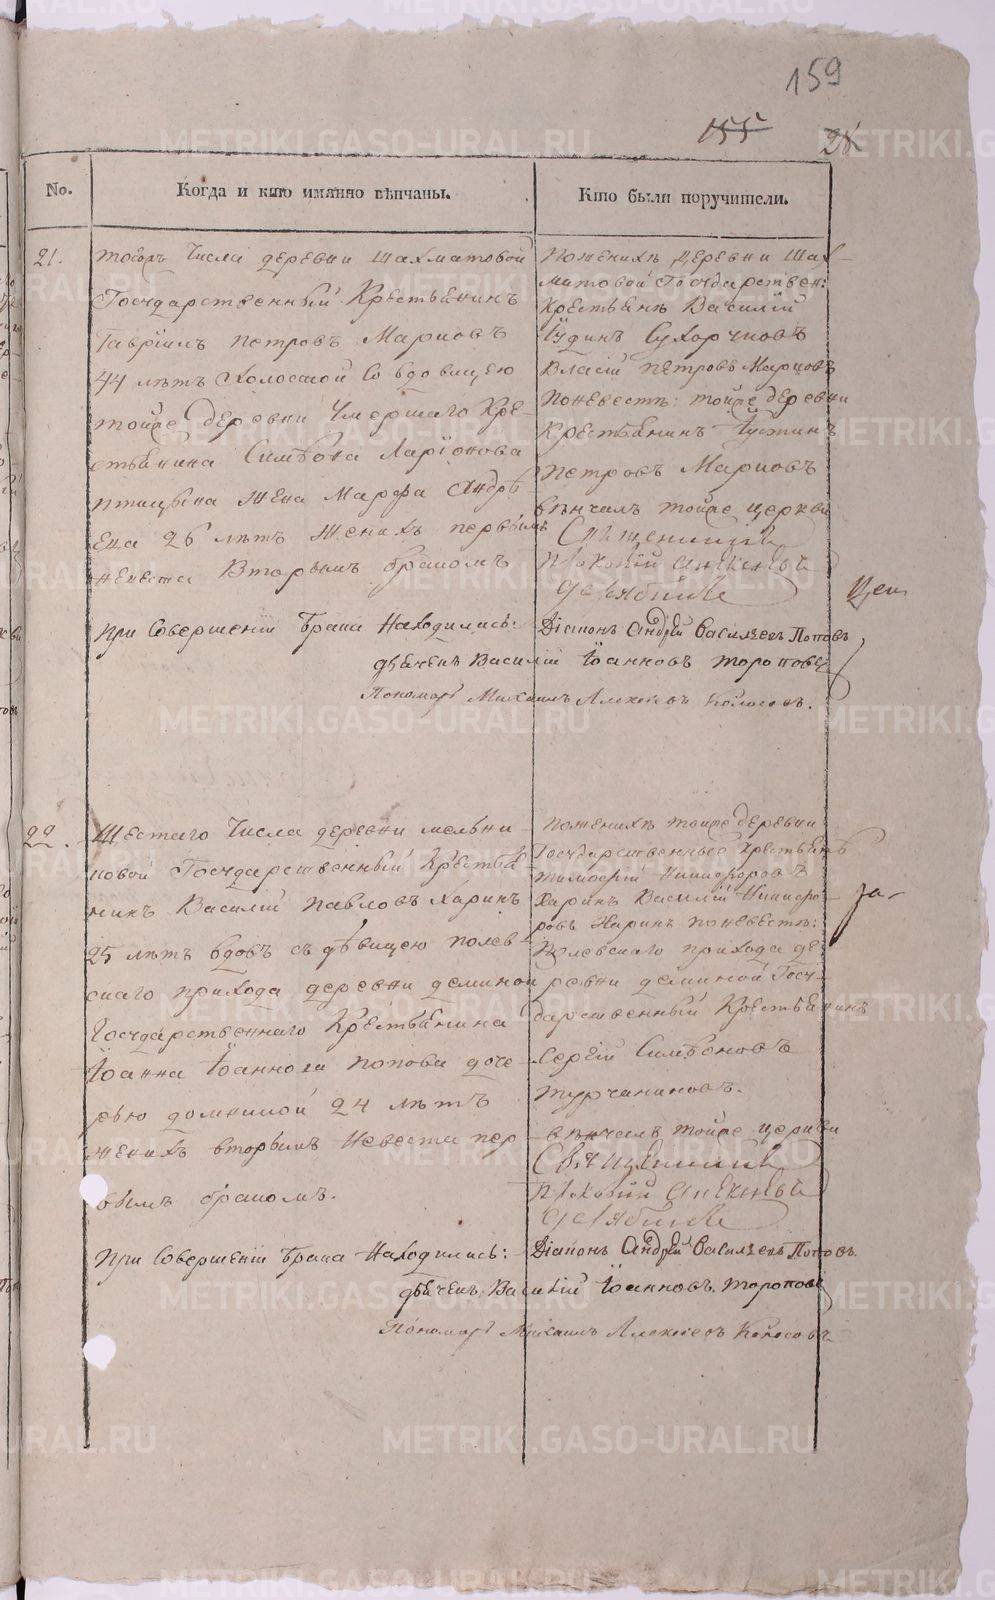 159
155
28
No.
Когда и кто имянно вѣнчаны.
Кто были поручители.
21.
тогожъ Числа деревни Шахматовой
Государственный Крестьянинъ
Гаврiилъ Петровъ Марковъ
44 лѣтъ Холостой Со вдовицею
тойже деревни Умершаго Кре-
стьянина Симеона Ларiонова
Птицына Жена Марфа Андрѣ
ева 26 лѣтъ Женихъ первымъ
невеста Вторымъ бракомъ
Поженихѣ деревни Шах-
матовой Государствен:
Крестьянъ Василiй
Iудинъ Сухоруковъ
Власiй Петровъ Марковъ
Поневестѣ: тойже деревни
Крестьянинъ Iустинъ
Петровъ Марковъ
вѣнчалъ тойже церкви
Священникъ
При Совершенiи Брака Находились: Дiаконъ Андрей Васильевъ Поповъ
дьячекъ Василiй Iоанновъ Тороповъ
Пономарь Михаилъ Алексѣевъ Колосовъ.
22.
Шестаго Числа деревни мельни-
ковой Государственный Крестья-
нинъ Василiй Павловъ Харинъ
25 лѣтъ вдовъ съ дѣвицею полев-
скаго прихода деревни деминой
Государственнаго Крестьянина
Iоанна Iоаннова Попова доче-
рью домникой 24 лѣтъ
женихъ вторымъ Невеста пер
вымъ бракомъ.
Поженихѣ тойже деревни
Государственные Крестьяне
Тимофей Никифоровъ
Харинъ Василiй Никифо-
ровъ Харинъ Поневестѣ:
Полевскаго прихода де-
ревни деминой Госу-
дарственный Крестьянинъ
Сергiй Симеоновъ
турчаниновъ.
вѣнчалъ тойже церкви
Священникъ
При Совершенiи Брака Находились: Дiаконъ Андрей Васильевъ Поповъ.
дьячекъ Василiй Iоанновъ. Тороповъ
Пономарь Михаилъ Алексѣевъ Колосовъ
METRIKI.GASO-URAL.RU